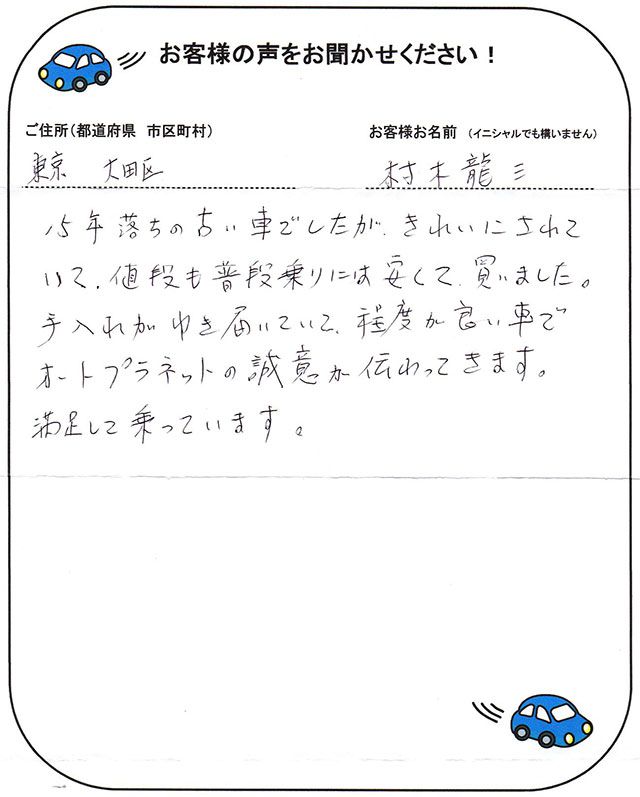 お客様の声をお聞かせください！
ご住所（都道府県 市区町村） お客様お名前 （イニシャルでも構いません）
東京 大田区 村木龍三
15年落ちの古い車でしたが、きれいにされて
いて、値段も普段乗りには安くて、買いました。
手入れがゆき届いていて、程度が良い車で
オートプラネットの誠意が伝わってきます。
満足して乗っています。